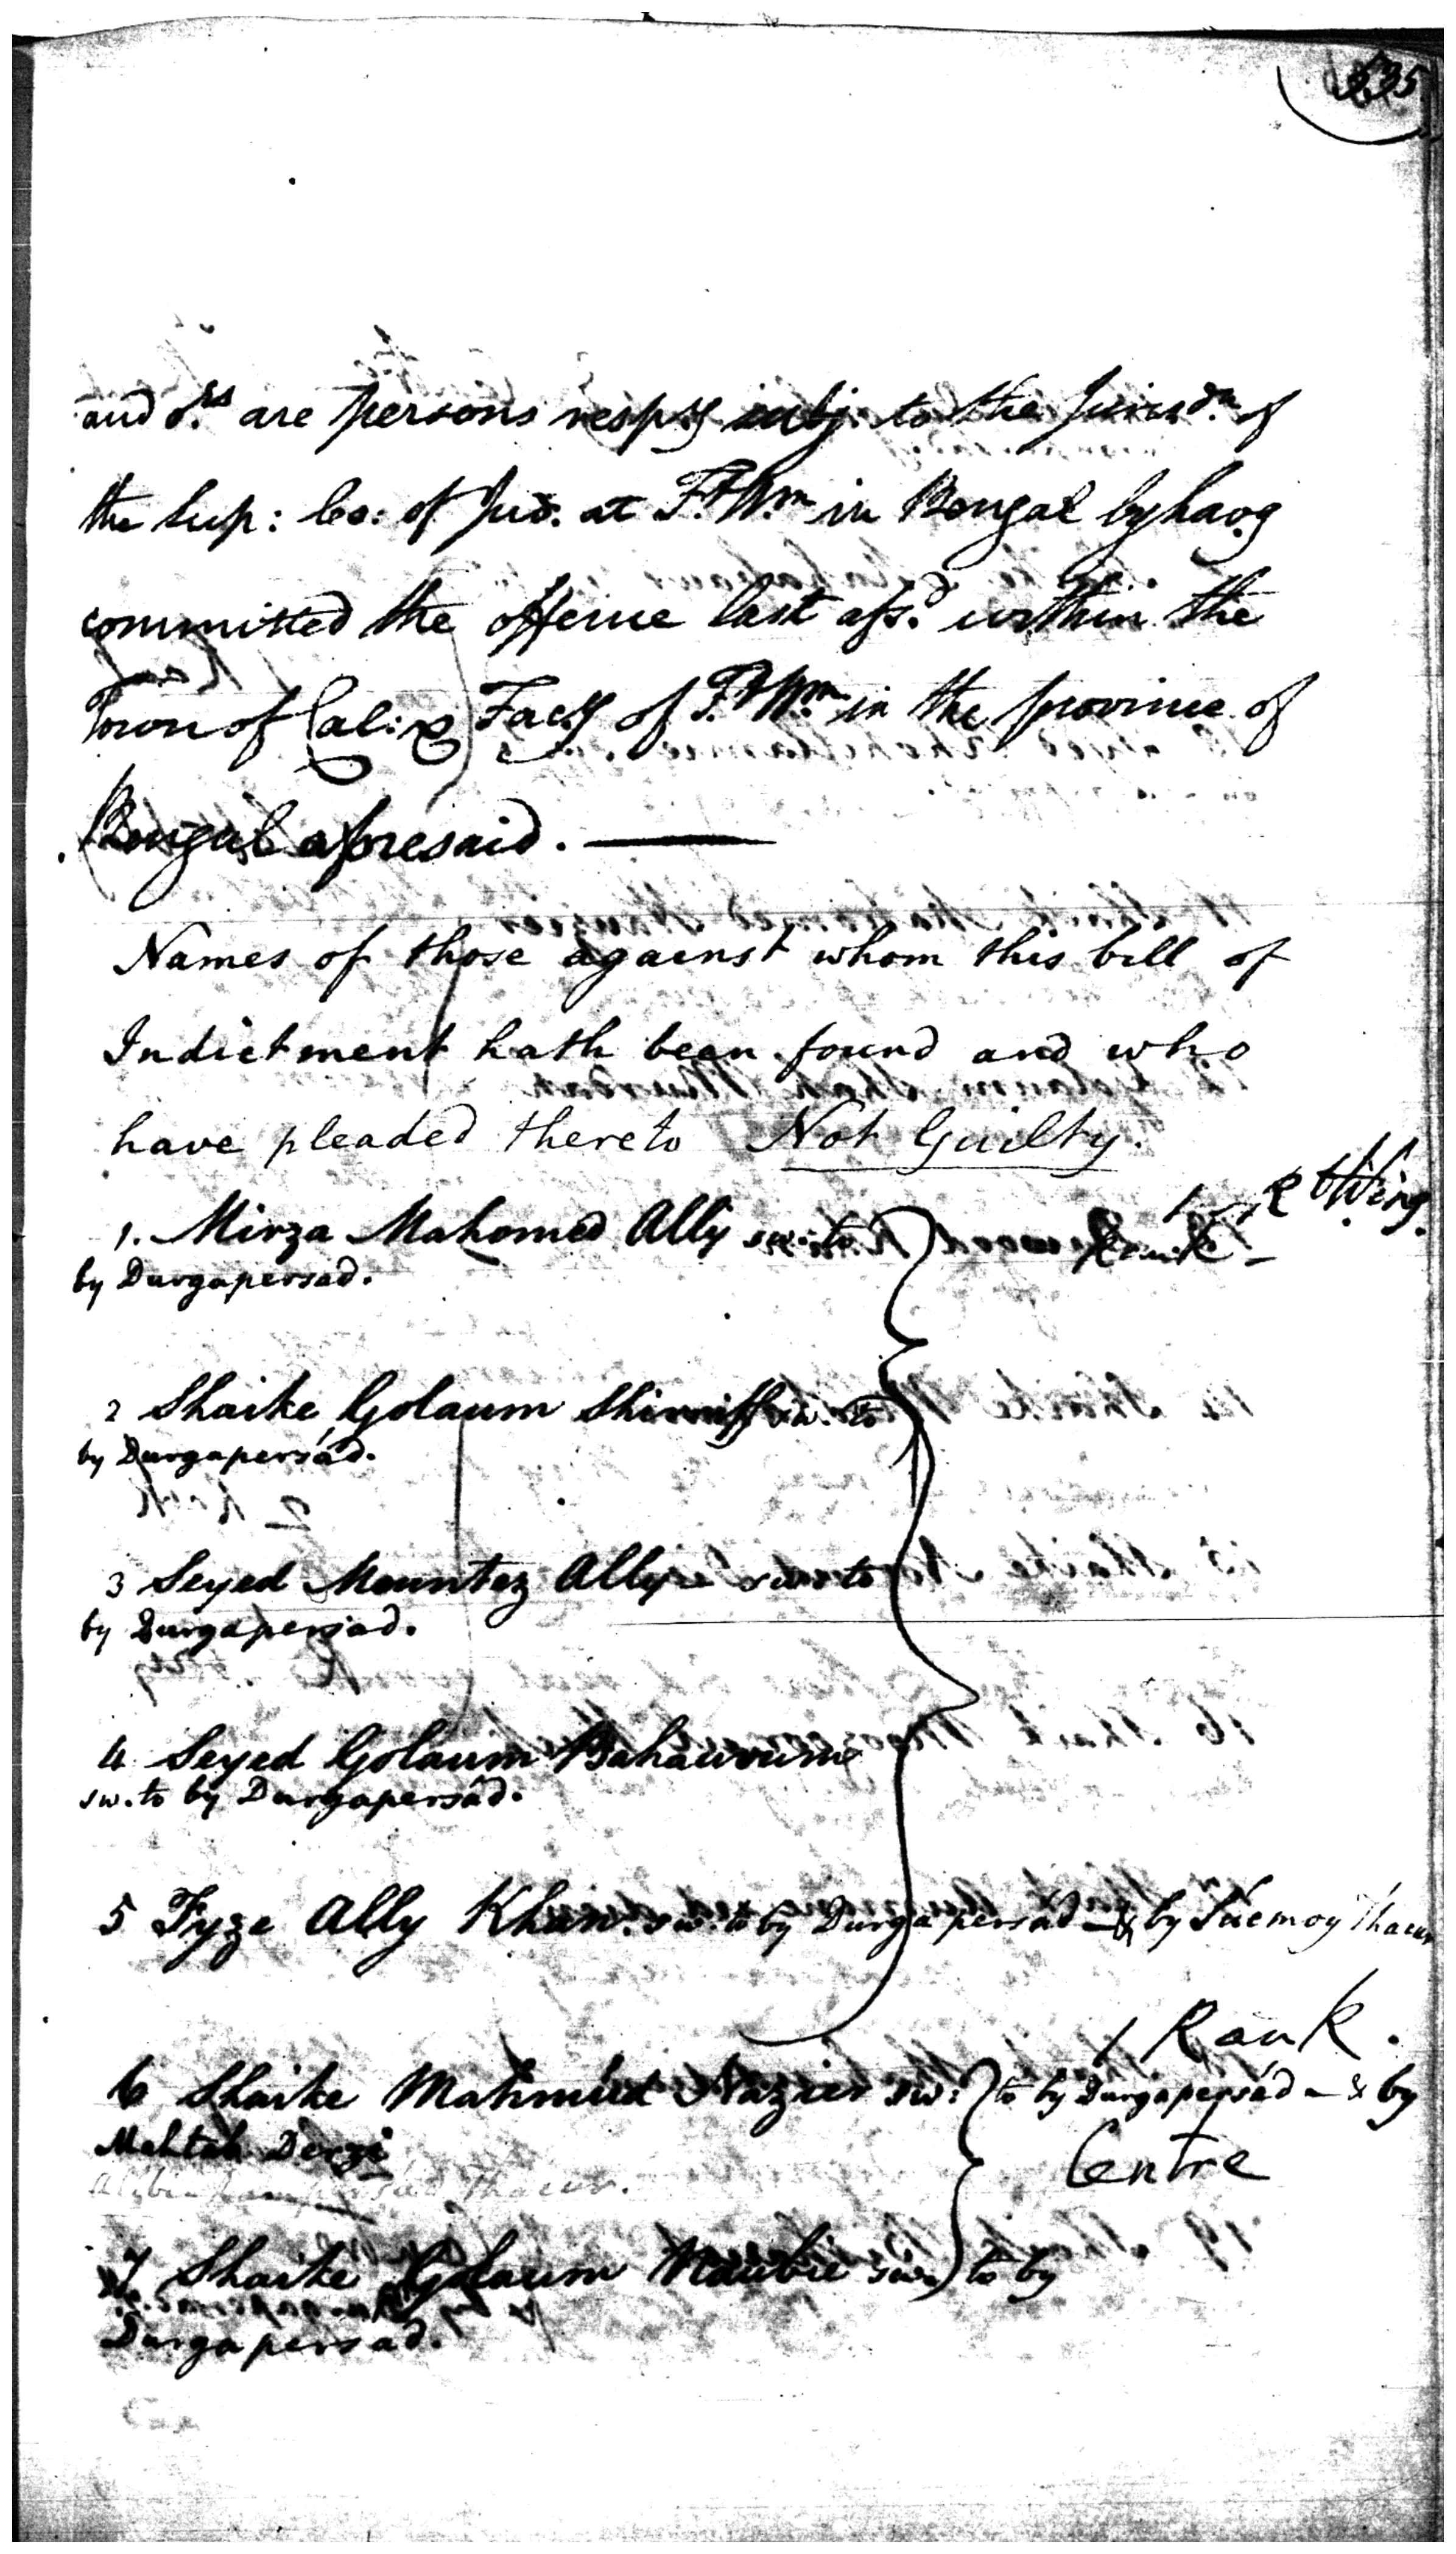 535
and ors. are persons respy. subj. to the Jurisdn. of
the Sup: Co: of Jud. at Ft. Wm. in Bengal by havg.
committed the offence last afsd. within the
Town of Cal: & Facy. of Ft. Wm. in the province of
Bengal aforesaid.
Names of those against whom this bill of
Indictment hath been found and who
have pleaded thereto Not Guilty.
R Wing.
1. Mirza Mahomed Ally sw. to
by Durgapersad.
2 Shaike Golaum sw. to
by Durgapersad.
3 Seyed Mountez Ally sw. to
by Durgapersad.
4 Seyed Golaum
sw. to by Durgapersad.
5 Fyze Ally Khan. sw. to by Durgapersad & by Thacur
1 Rank.
6 Shaike Mahmud Nazier sw: to by Durgapersad - & by
Mehtab Derzi
Centre
7 Shaike Golaum Naubie sw. to by
Durgapersad.